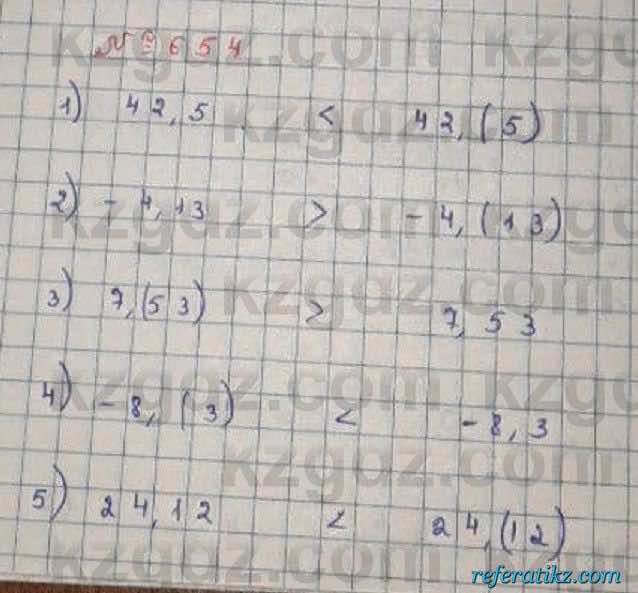 № 654
1) 42,5 < 42,(5)
2) -4,13 > -4,(13)
3) 7,(53) > 7,53
4) -8,(3) < -8,3
5) 24,12 < 24,(12)
kzgdz.com
referatikz.com